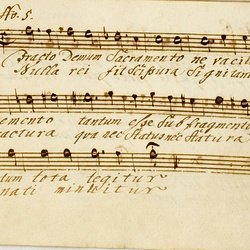 No. 5.
Fracto Demum Sacramento ne vacil
Nulla rei fit scissura Signi tan
memento tantum esse Sub fragmento
fractura qva nec Status nec Statura
tum tota legitur
nati minuitur